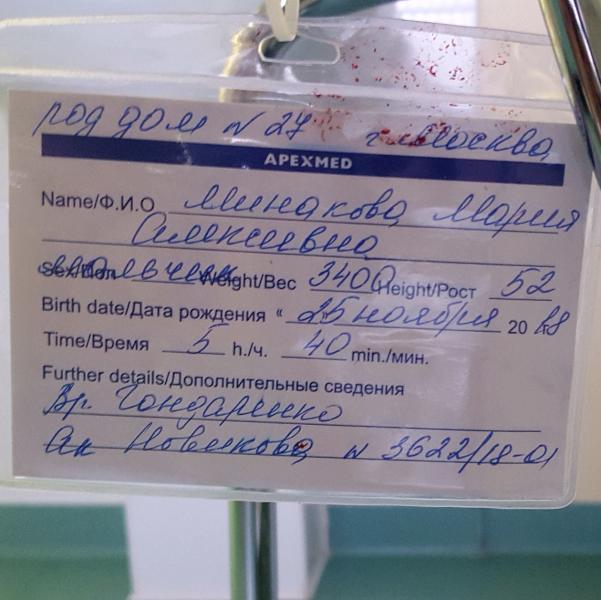 род дом N 27 г. Москва
APEXMED
Name/Ф.И.О Минакова Мария
Алексеевна
Sex/Пол мальчик Weight/Вес 3400 Height/Рост 52
Birth date/Дата рождения " 25 ноября 20 18
Time/Время 5 h./ч. 40 min./мин.
Further details/Дополнительные сведения
Вр. Гондаренко
Ак Новикова N 3622/18-01